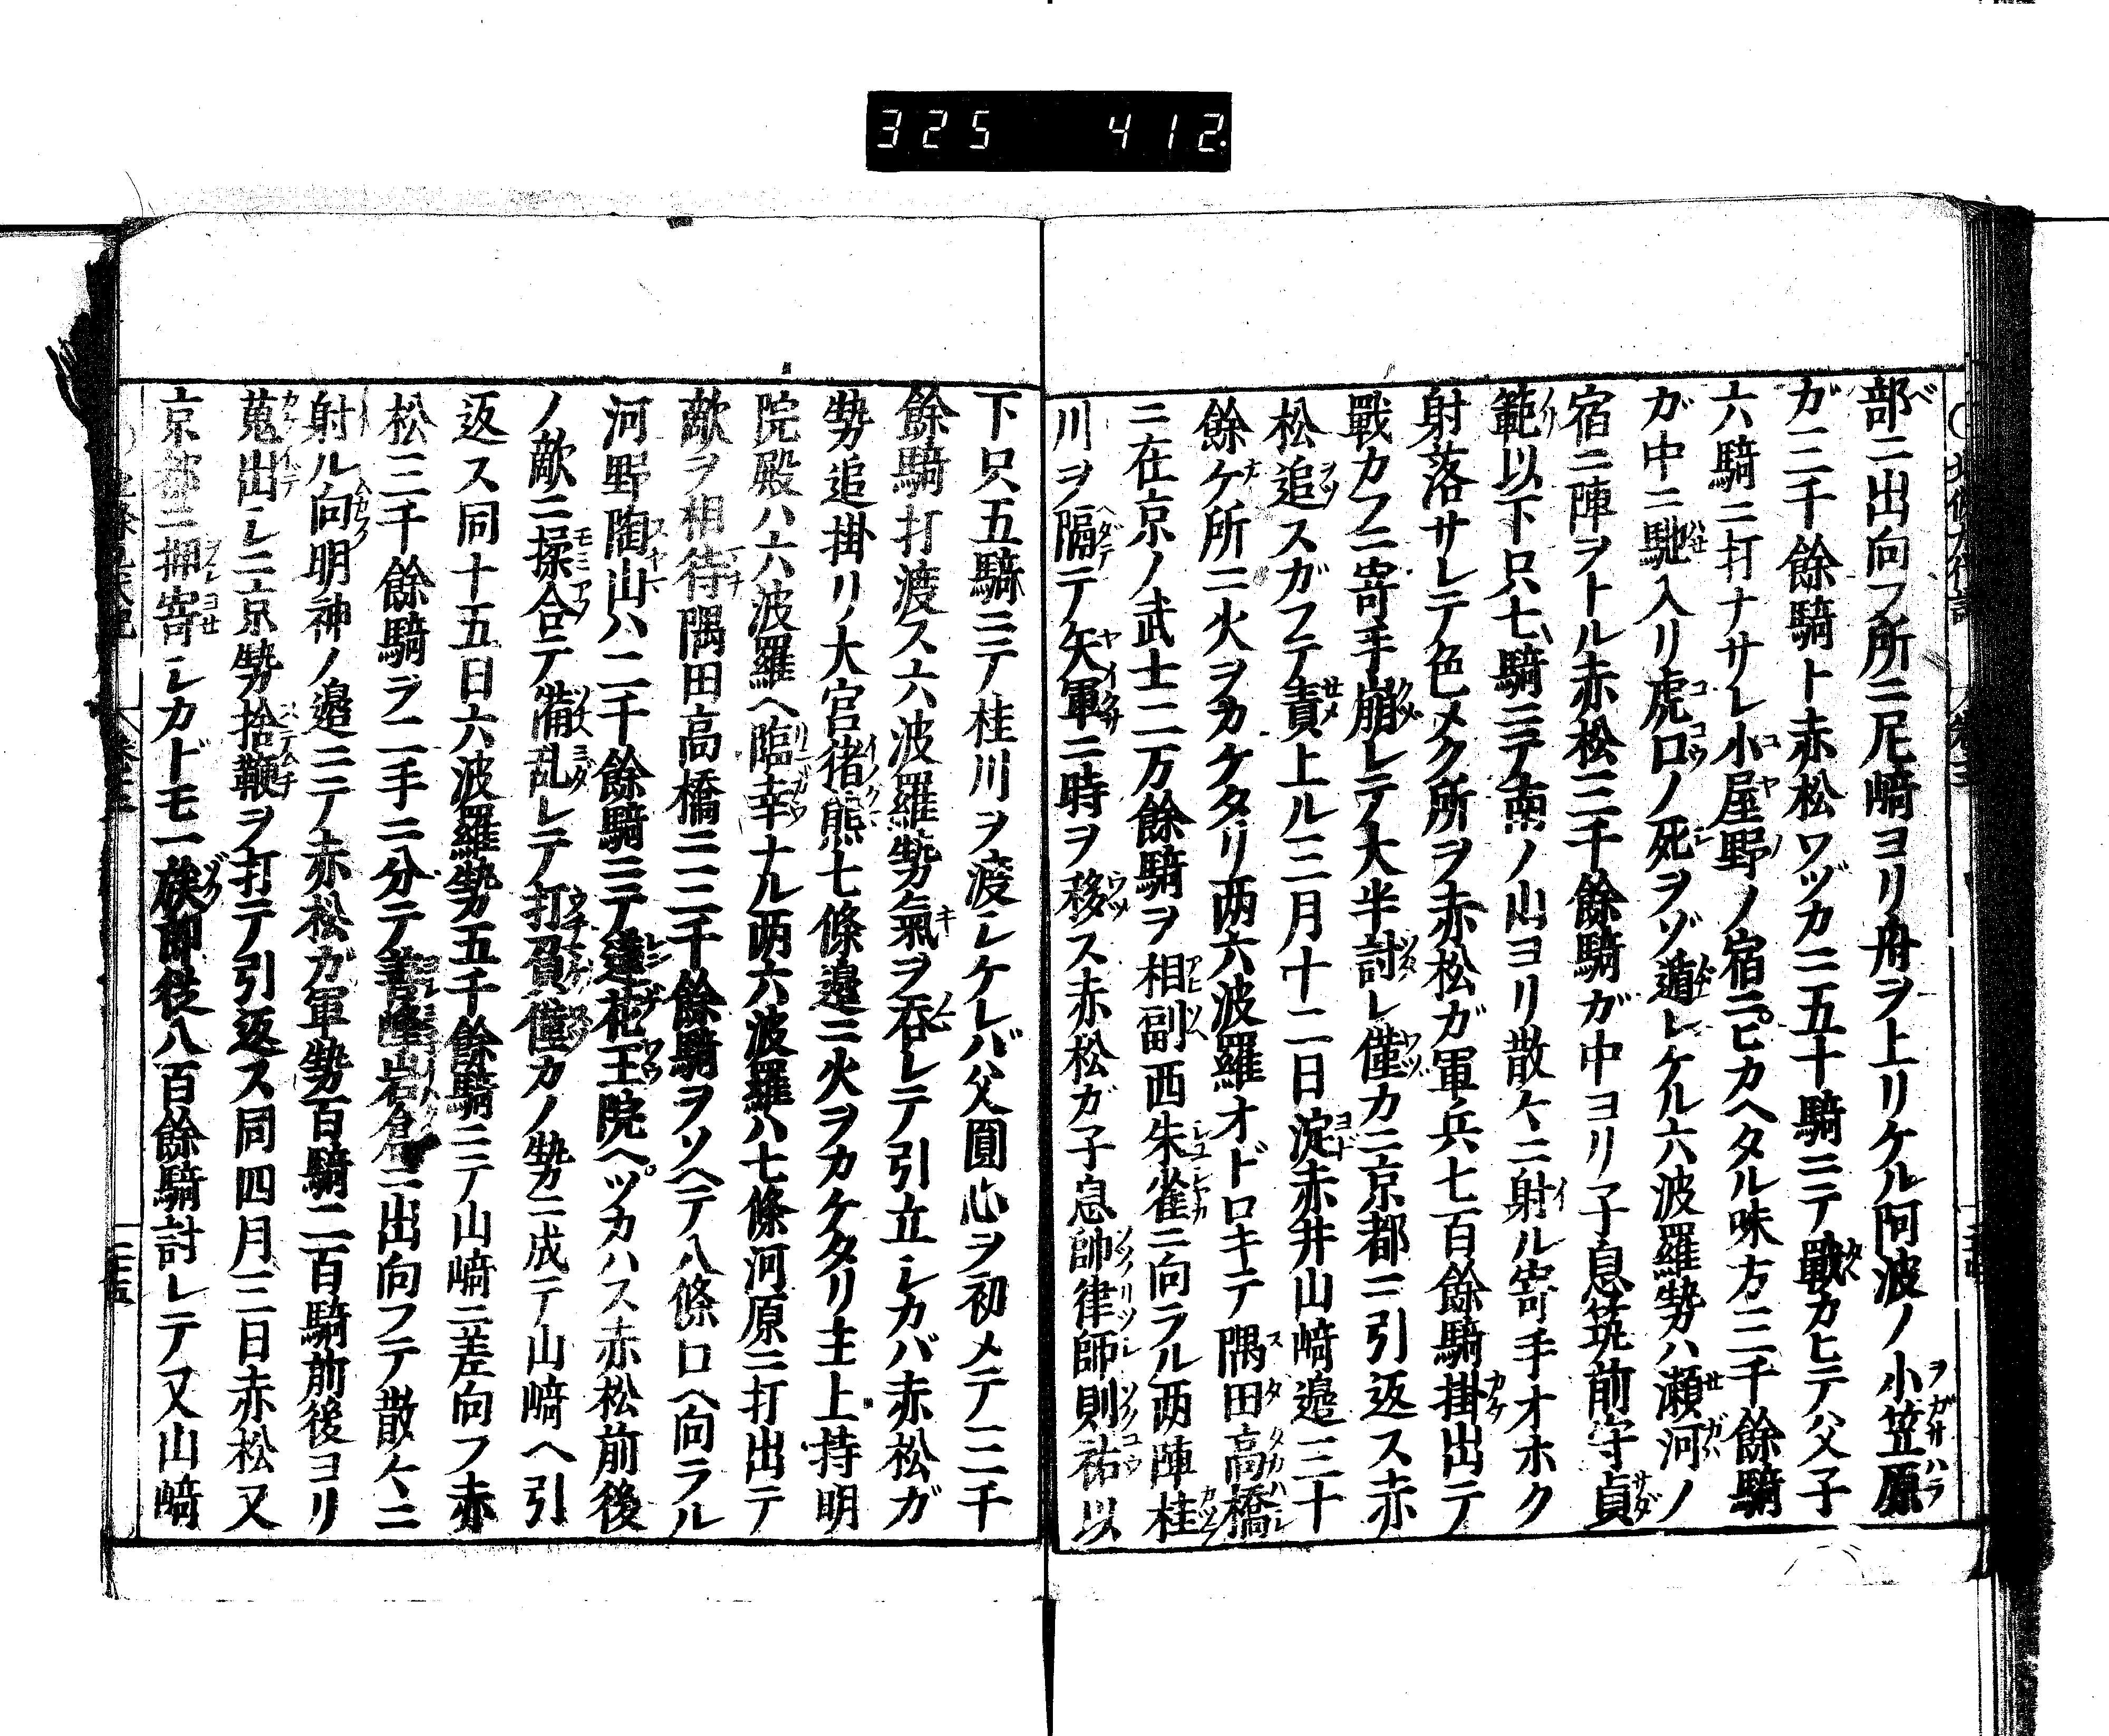 325 412.
部ニ出向フ所ニ尼﨑ヨリ舟ヲ上リケル阿波ノ小笠原
ガ三千餘騎ト赤松ワヅカニ五十騎ニテ戰カヒテ父子
六騎ニ打ナサレ小屋野ノ宿ニヒカヘタル味方三千餘騎
ガ中ニ馳入リ虎口ノ死ヲゾ遁レケル六波羅勢ハ瀬河ノ
宿ニ陣ヲトル赤松三千餘騎ガ中ヨリ子息筑前守貞
範以下只七騎ニテ南ノ山ヨリ散々ニ射ル寄手オホク
射落サレテ色メク所ヲ赤松ガ軍兵七百餘騎掛出テ
戰カフニ寄手崩レテ大半討レ僅カニ京都ニ引返ス赤
松追スガフテ責上ル三月十二日淀赤井山﨑邉三十
餘ケ所ニ火ヲカケタリ两六波羅オドロキテ隅田高橋
ニ在京ノ武士二万餘騎ヲ相副西朱雀ニ向ラル两陣桂
川ヲ隔テ矢軍ニ時ヲ移ス赤松ガ子息帥律師則祐以
下只五騎ニテ桂川ヲ渡シケレバ父圓心ヲ初メテ三千
餘騎打渡ス六波羅勢氣ヲ呑レテ引立シカバ赤松ガ
勢追掛リ大宮猪熊七條邉ニ火ヲカケタリ主上持明
院殿ハ六波羅ヘ臨幸ナル两六波羅ハ七條河原ニ打出テ
敵ヲ相待隅田高橋ニ三千餘騎ヲソヘテ八條口ヘ向ラル
河野陶山ハ二千餘騎ニテ蓮花王院ヘツカハス赤松前後
ノ敵ニ揉合テ備乱レテ打負僅カノ勢ニ成テ山﨑ヘ引
返ス同十五日六波羅勢五千餘騎ニテ山﨑ニ差向フ赤
松三千餘騎ヲ二手ニ分テ善峰岩倉ニ出向フテ散々ニ
射ル向明神ノ邉ニテ赤松ガ軍勢百騎二百騎前後ヨリ
蒐出シニ京勢捨鞭ヲ打テ引返ス同四月三日赤松又
京都ニ押寄シカドモ一族郎従八百餘騎討レテ又山﨑